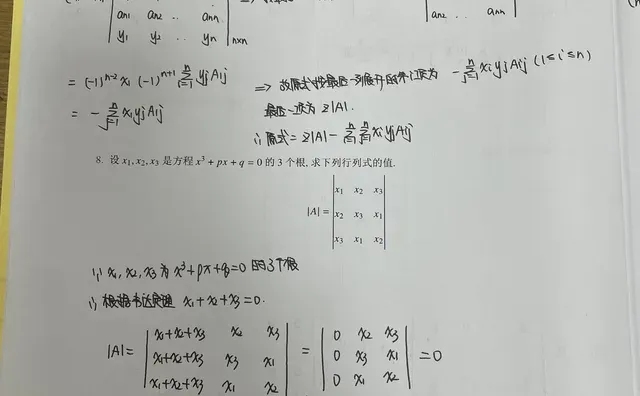 an1 an2 .. ann
y1 y2 .. yn n×n
an2 .. ann
= (-1)^{n-2} xi (-1)^{n+1} \sum_{j=1}^{n} yj Aij
⇒ 故原式按最后一列展开的第i项为 - \sum_{j=1}^{n} xi yj Aij (1≤i≤n)
= - \sum_{j=1}^{n} xi yj Aij
最后一项为 z|A|.
∴ 原式 = z|A| - \sum_{i=1}^{n} \sum_{j=1}^{n} xi yj Aij
8. 设 x1, x2, x3 是方程 x³ + px + q = 0 的 3 个根, 求下列行列式的值.
x1 x2 x3
|A| = x2 x3 x1
x3 x1 x2
∵ x1, x2, x3 为 x³+px+q=0 的3个根
∴ 根据韦达定理 x1+x2+x3=0.
x1+x2+x3 x2 x3 0 x2 x3
|A| = x1+x2+x3 x3 x1 = 0 x3 x1 = 0
x1+x2+x3 x1 x2 0 x1 x2